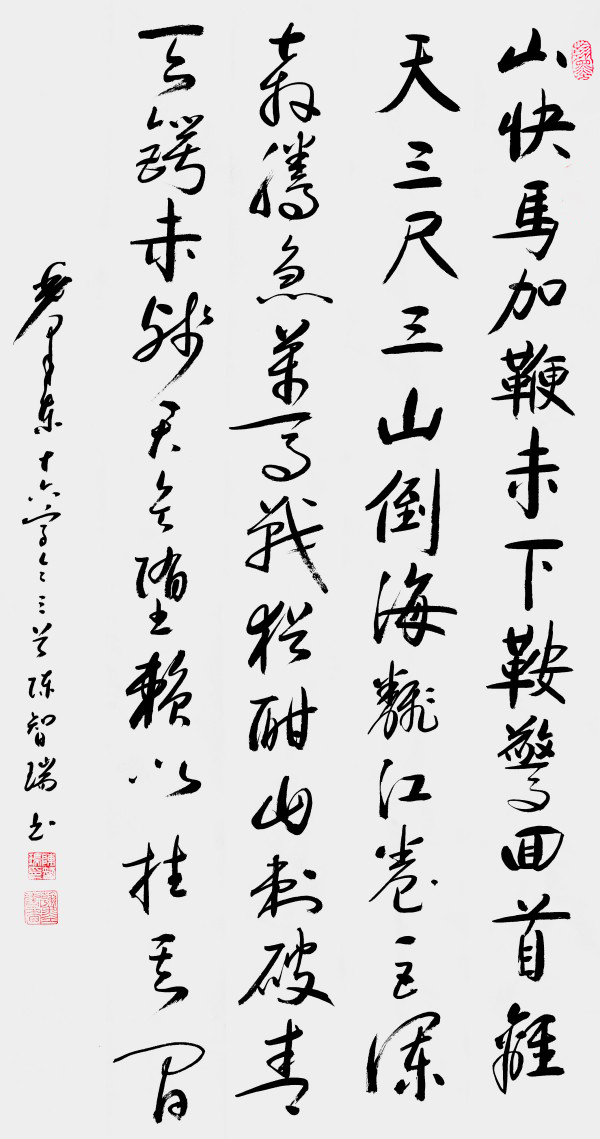 山快馬加鞭未下鞍驚回首離
天三尺三山倒海飜江卷巨瀾
奔騰急萬馬戰猶酣山刺破青
天鍔未殘天欲墮賴以拄其間
毛澤東十六字令三首陳智瑞书